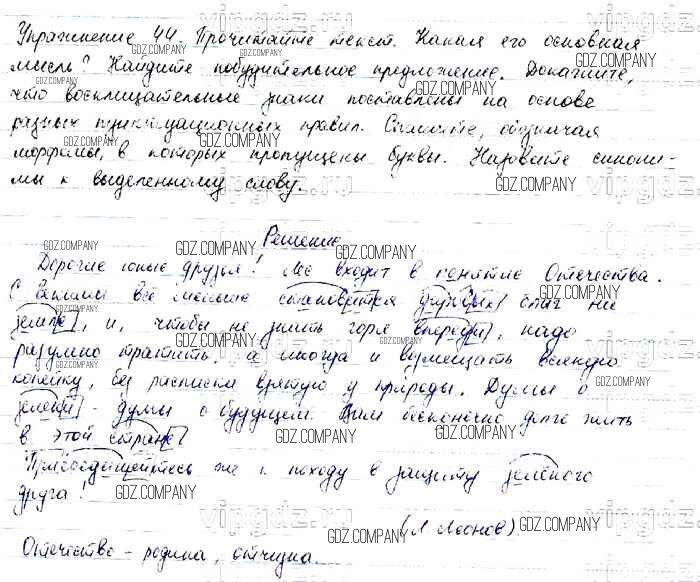 Упражнение 44. Прочитайте текст. Какая его основная
мысль? Найдите побудительное предложение. Докажите,
что восклицательные знаки поставлены на основе
разных пунктуационных правил. Спишите, обозначая
морфемы, в которых пропущены буквы. Назовите синони-
мы к выделенному слову.
Решение
Дорогие юные друзья! Лес входит в понятие Отечества.
С все меньше становится на
земле, и, чтобы не знать горя впереди, надо
разумно тратить, а иногда и возмещать всякую
копейку, без расписки взятую у природы. Думы о
зелени - думы о будущем. Вам бесконечно долго жить
в этой стране
Присоединяйтесь же к походу в защиту зеленого
друга!
(Л Леонов)
Отечество - родина, отчизна.
GDZ.COMPANY
vipgdz.ru